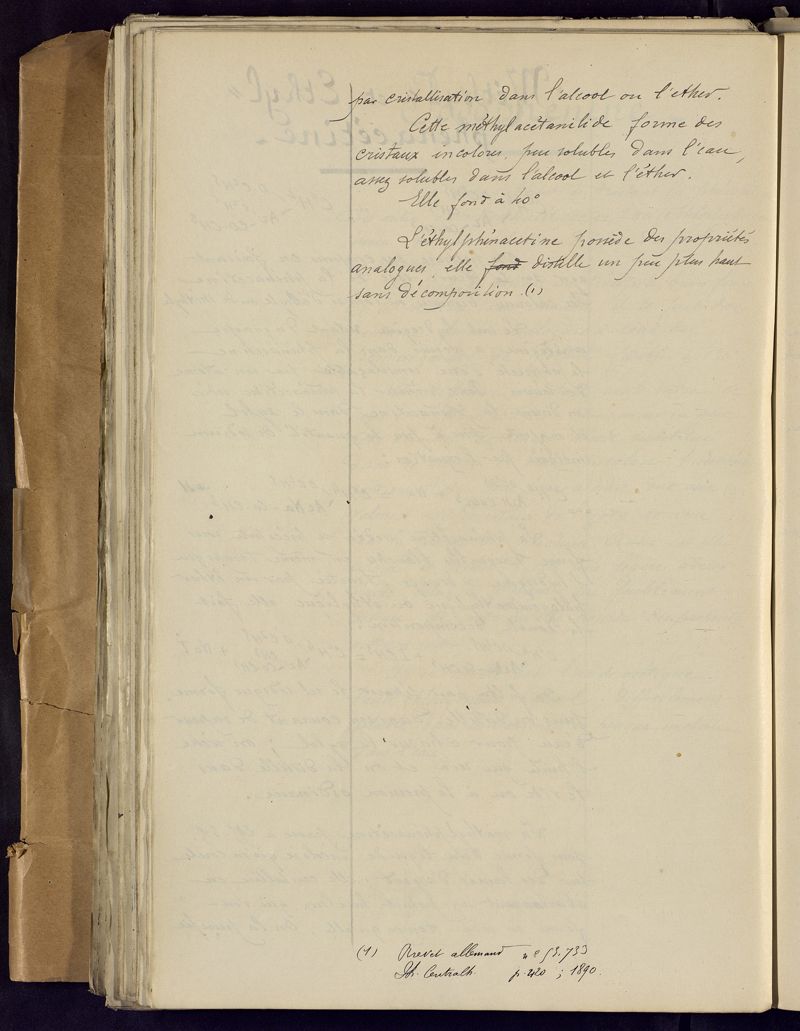 par cristallisation dans l'alcool ou l'ether.
Cette méthylacétanilide forme des
cristaux incolores, peu solubles dans l'eau,
assez solubles dans l'alcool et l'éther.
Elle fond à 40°
L'éthylphénacetine possède des propriétés
analogues, elle fond distille un peu plus haut
sans décomposition. (1)
(1) Brevet allemand n° 53.733
Ph. Centralh. p. 420 ; 1890.